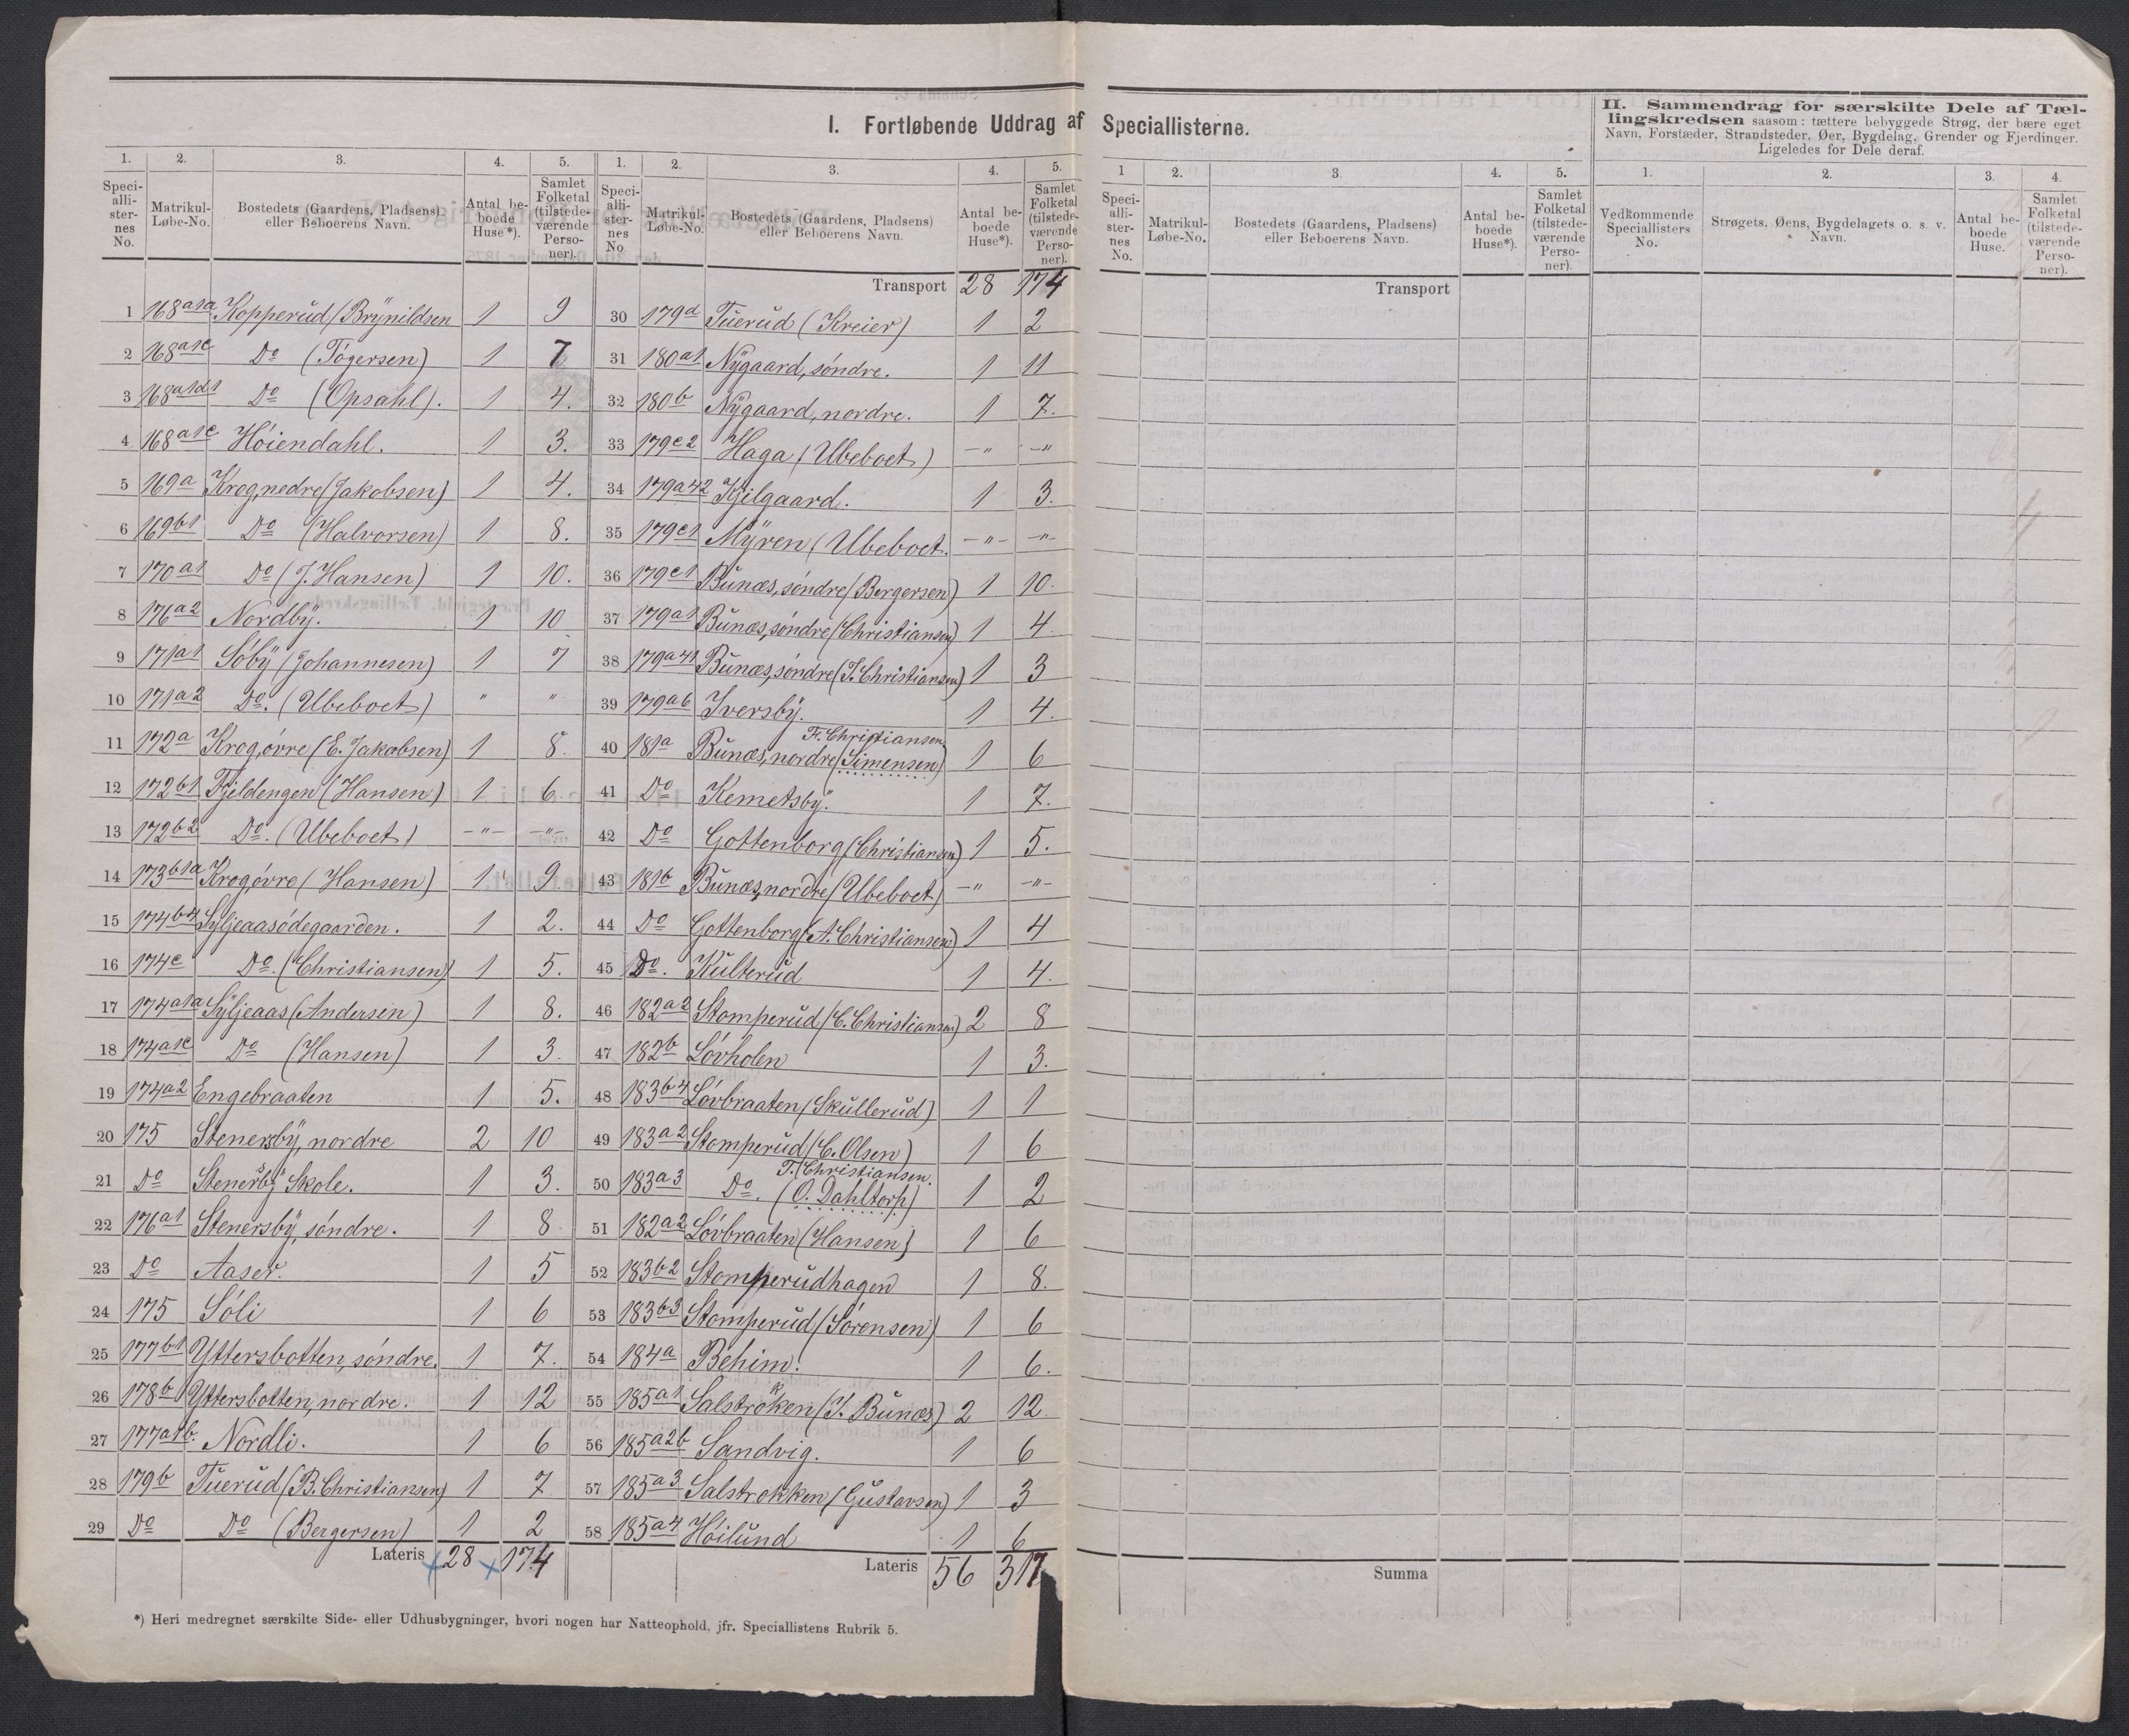 I. Fortløbende Uddrag af Speciallisterne.
1. 2. 3. 4. 5.
Speciallisternes No. Matrikul-Løbe-No. Bostedets (Gaardens, Pladsens) eller Beboerens Navn. Antal beboede Huse*). Samlet Folketal (tilstedeværende Personer).
1 168a1a Kopperud (Brynildsen 1 9
2 168a1c Do (Togersen) 1 7
3 168a1d1 Do (Opsahl). 1 4.
4 168a1e Höiendahl. 1 3.
5 169a Krog, nedre (Jakobsen) 1 4.
6 169b1 Do (Halvorsen) 1 8.
7 170a1 Do (J. Hansen) 1 10.
8 176a2 Nordby. 1 10
9 171a1 Söby (Johannesen) 1 7
10 171a2 Do. (Ubeboet) " "
11 172a Krog, övre (E. Jakobsen) 1 8.
12 172b1 Fjeldengen (Hansen) 1 6.
13 172b2 Do. (Ubeboet) -"- -"-
14 173b1a Krog, övre (Hansen) 1 9.
15 174b4 Syljeaasödegaarden. 1 2.
16 174c Do. (Christiansen) 1 5.
17 174a1a Syljeaas (Andersen) 1 8.
18 174a1c Do (Hansen) 1 3.
19 174a2 Engebraaten 1 5.
20 175 Stenersby, nordre 2 10
21 Do Stenersby Skole. 1 3.
22 176a1 Stenersby, söndre. 1 8
23 Do Aaser. 1 5
24 175 Söli 1 6
25 177b1 Yttersbotten, söndre. 1 7.
26 178b Yttersbotten, nordre. 1 12
27 177a1b. Nordli. 1 6
28 179b Tuerud (B. Christiansen) 1 7
29 Do Do (Bergersen) 1 2
Lateris 28 174
*) Heri medregnet særskilte Side- eller Udhusbygninger, hvori nogen har Natteophold, jfr. Speciallistens Rubrik 5.
1. 2. 3. 4. 5.
Speciallisternes No. Matrikul-Løbe-No. Bostedets (Gaardens, Pladsens) eller Beboerens Navn. Antal beboede Huse*). Samlet Folketal (tilstedeværende Personer).
Transport 28 174
30 179d Tuerud (Kreier) 1 2
31 180a1 Nygaard, söndre. 1 11
32 180b Nygaard, nordre. 1 7.
33 179c2 Haga (Ubeboet) -" -"
34 179a42 Kjilgaard. 1 3.
35 179c1 Myren (Ubeboet. -"- -"-
36 179c1 Bunæs, söndre (Bergersen) 1 10.
37 179a1 Bunæs, söndre (Christiansen) 1 4.
38 179a41 Bunæs, söndre (J. Christiansen) 1 3
39 179a6 Iversby. 1 4.
F. Christiansen
40 181a Bunæs, nordre (Simensen) 1 6
41 Do Kemetsby. 1 7.
42 Do Gottenborg (Christiansen) 1 5.
43 181b Bunæs, nordre (Ubeboet) -" -"-
44 Do Gottenborg (A. Christiansen) 1 4
45 Do. Kulterud 1 4.
46 182a2 Stomperud (C. Christiansen) 2 8
47 182b Lövholen 1 3.
48 183b4 Lövbraaten (Skullerud) 1 1
49 183a2 Stomperud (C. Olsen) 1 6
T. Christiansen.
50 183a3 Do. (O. Dahltorp) 1 2
51 182a2 Lövbraaten (Hansen) 1 6
52 183b2 Stomperudhagen 1 8.
53 183b3 Stomperud (Sörensen) 1 6
54 184a Behim. 1 6.
55 185a1 Salströken (J. Bunæs) 2 12.
56 185a2b Sandvig. 1 6
57 185a3 Salstrokken (Gustavsen) 1 3
58 185a4 Höilund 1 6
Lateris 56 317
1 2. 3. 4. 5.
Speciallisternes No. Matrikul-Løbe-No. Bostedets (Gaardens, Pladsens) eller Beboerens Navn. Antal beboede Huse*). Samlet Folketal (tilstedeværende Personer).
Transport
Summa
II. Sammendrag for særskilte Dele af Tællingskredsen saasom: tættere bebyggede Strøg, der bære eget
Navn, Forstæder, Strandsteder, Øer, Bygdelag, Grender og Fjerdinger.
Ligeledes for Dele deraf.
1. 2. 3. 4.
Vedkommende Speciallisters No. Strøgets, Øens, Bygdelagets o. s. v. Navn. Antal beboede Huse. Samlet Folketal (tilstedeværende Personer).